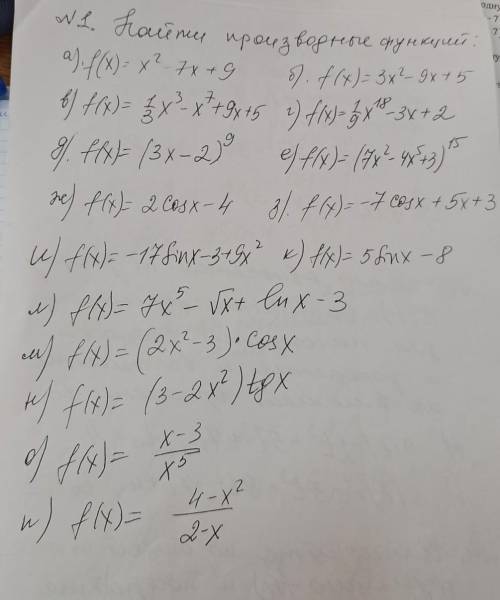 №1. Найти производные функций:
а). f(x) = x² - 7x + 9    б). f(x) = 3x² - 9x + 5
в) f(x) = 1/3 x³ - x⁷ + 9x + 5    г) f(x) = 1/9 x¹⁸ - 3x + 2
д). f(x) = (3x - 2)⁹    е) f(x) = (7x² - 4x⁵ + 3)¹⁵
ж) f(x) = 2 cosx - 4    з). f(x) = -7 cosx + 5x + 3
и) f(x) = -17 sinx - 3 + 9x²    к) f(x) = 5 sinx - 8
л) f(x) = 7x⁵ - √x + ln x - 3
м) f(x) = (2x² - 3) · cosx
н) f(x) = (3 - 2x²) tgx
о) f(x) = (x - 3)/x⁵
п) f(x) = (4 - x²)/(2 - x)